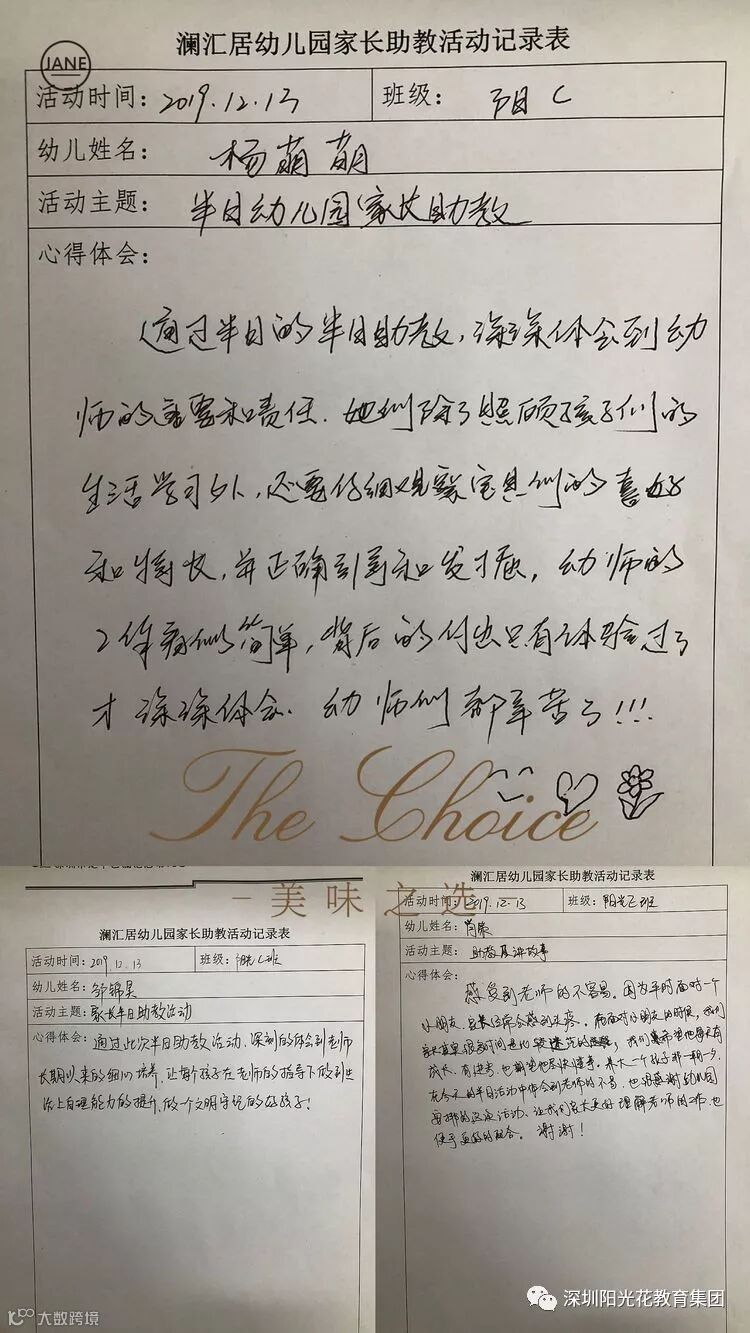 JANE
澜汇居幼儿园家长助教活动记录表
活动时间：2019.12.13 班级：阳C
幼儿姓名：杨萌萌
活动主题：半日幼儿园家长助教
心得体会：
通过半日的半日助教，深深体会到幼
师的重要和责任．她们除了照顾孩子们的
生活学习外，还要仔细观察宝贝们的喜好
和特长，并正确引导和发掘，幼师的
工作看似简单，背后的付出只有体验过了
才深深体会．幼师们都辛苦了!!!
The Choice
-美味之选
澜汇居幼儿园家长助教活动记录表
活动时间：2019.12.13 班级：阳光C班
幼儿姓名：邹锦昊
活动主题：家长半日助教活动
心得体会：通过此次半日助教活动．深刻的体会到老师
长期以来的细心培养，让每个孩子在老师的指导下做到生
活上自理能力的提升，做一个文明守纪的好孩子！
澜汇居幼儿园家长助教活动记录表
活动时间：2019.12.13 班级：阳光C班
幼儿姓名：肖
活动主题：助教及讲故事
心得体会：
感受到老师的不容易。因为平时面对一个
小朋友，家长经常会感到无奈。而面对小朋友的时候，我们
成长、有进步，也期望他尽快懂事。养大一个孩子都一把一步，
在今天的半日活动中体会到老师的不易，也很感谢幼儿园
安排的这次活动、让我们家长更好理解老师的工作，也
便于更好的配合。谢谢！
大数跨境
深圳阳光花教育集团